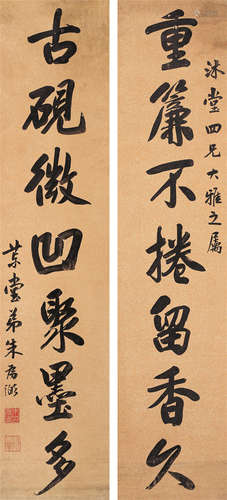 沐堂四兄大雅之屬
重簾不捲留香久
古硯微凹聚墨多
茮堂弟朱為弼